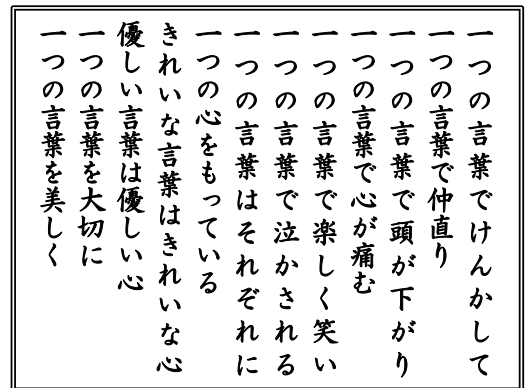 一つの言葉でけんかして
一つの言葉で仲直り
一つの言葉で頭が下がり
一つの言葉で心が痛む
一つの言葉で楽しく笑い
一つの言葉で泣かされる
一つの言葉はそれぞれに
一つの心をもっている
きれいな言葉はきれいな心
優しい言葉は優しい心
一つの言葉を大切に
一つの言葉を美しく